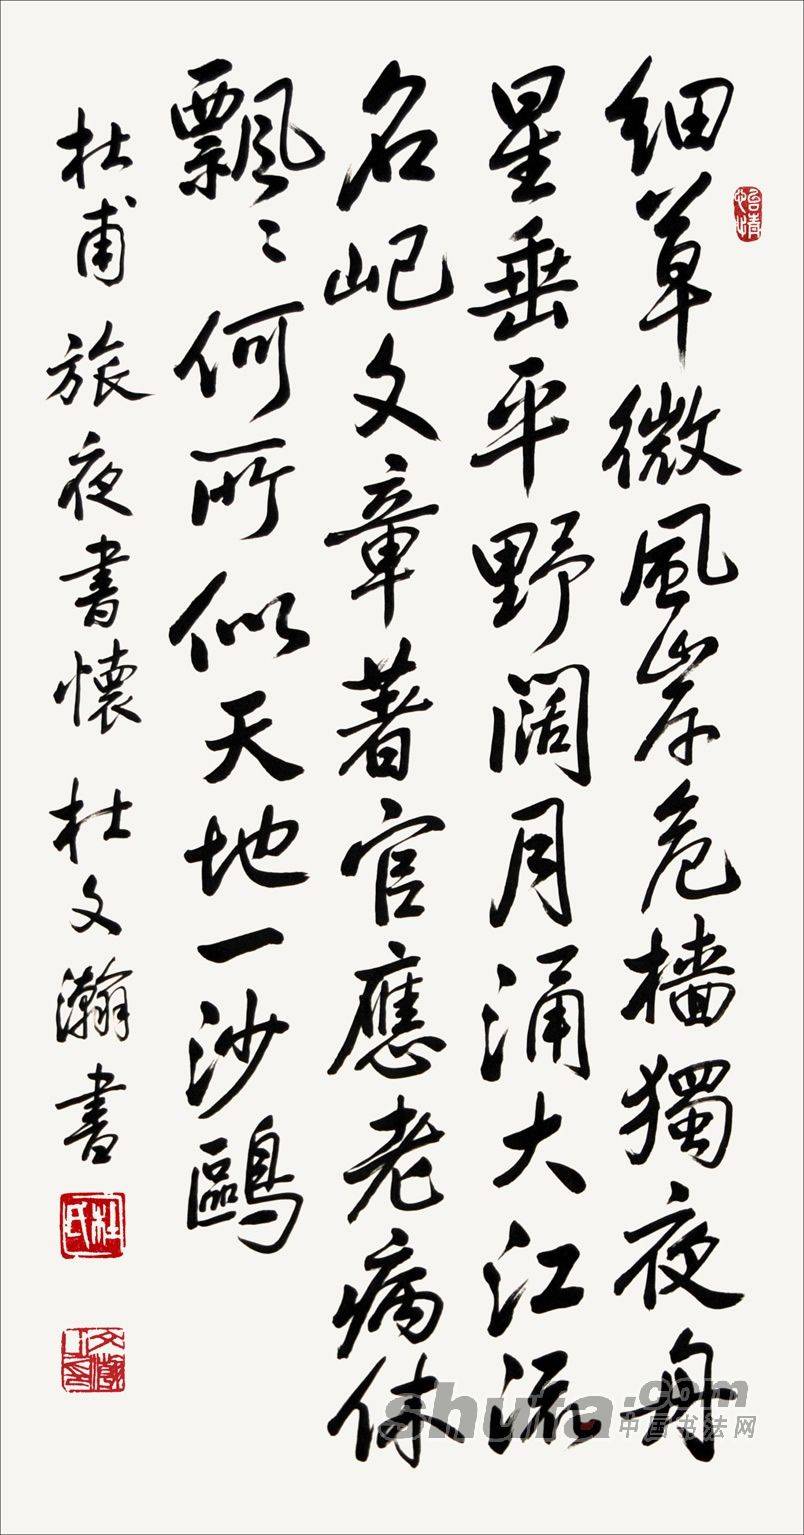 怡情
细草微風岸危檣獨夜舟
星垂平野阔月涌大江流
名屺文章著官應老病休
飄〻何所似天地一沙鷗
杜甫 旅夜書懷 杜文瀚書
杜氏
shufa.com
中国书法网